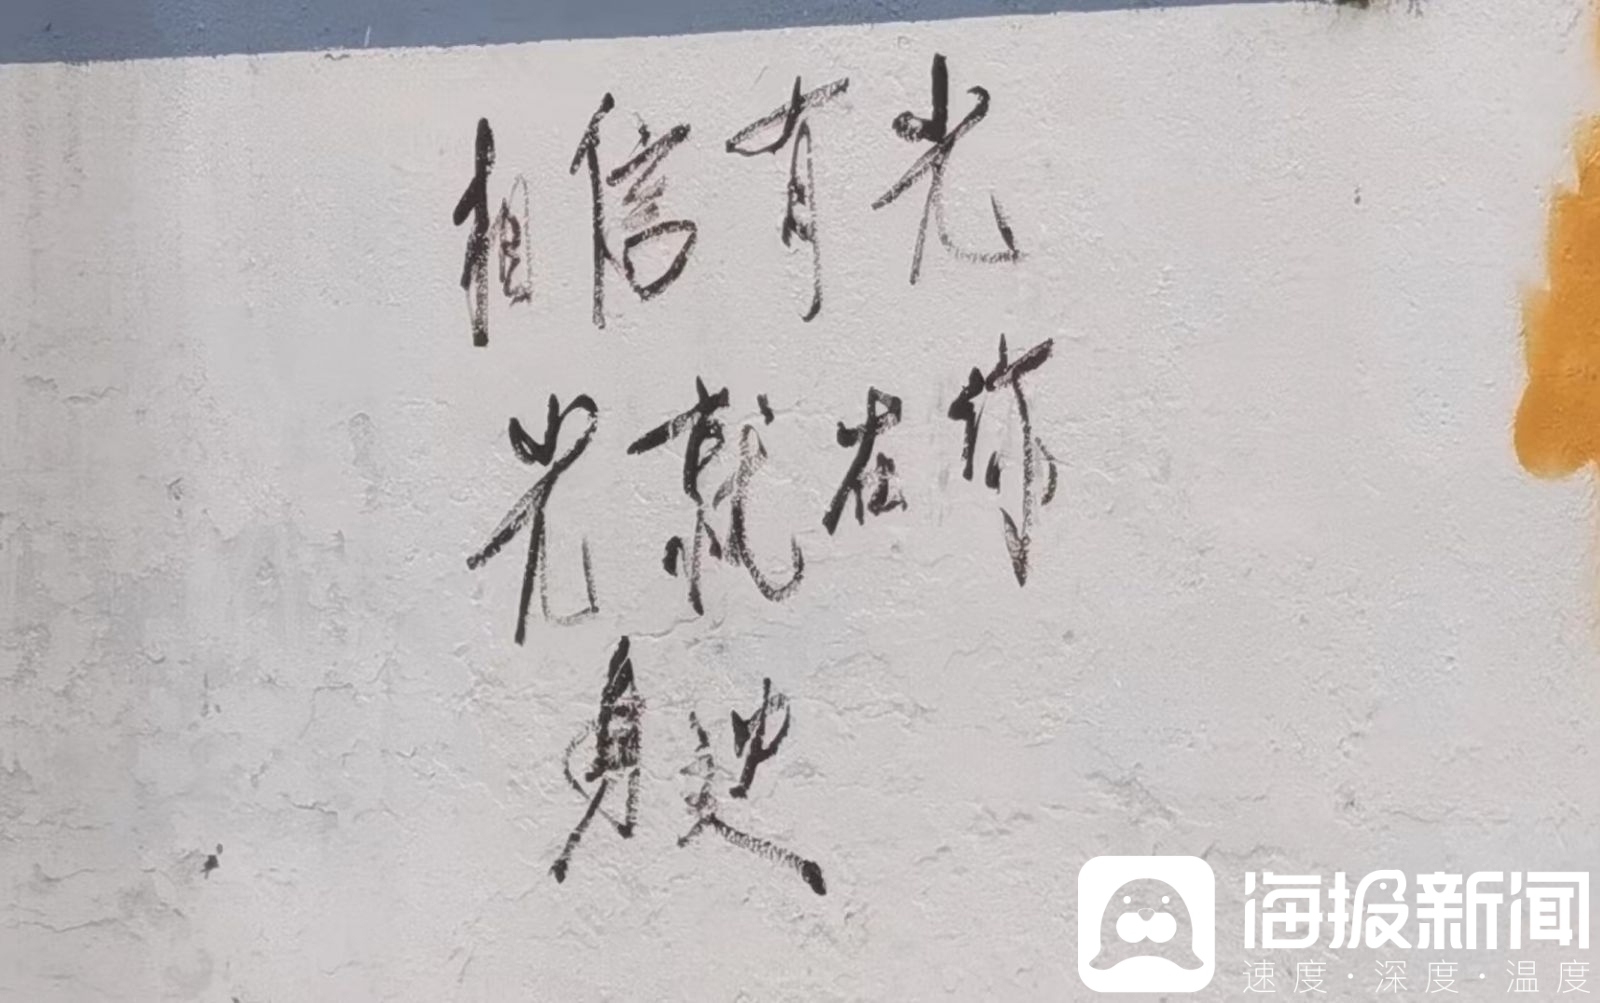 相信有光
光就在你
身边
海报新闻
速度·深度·温度